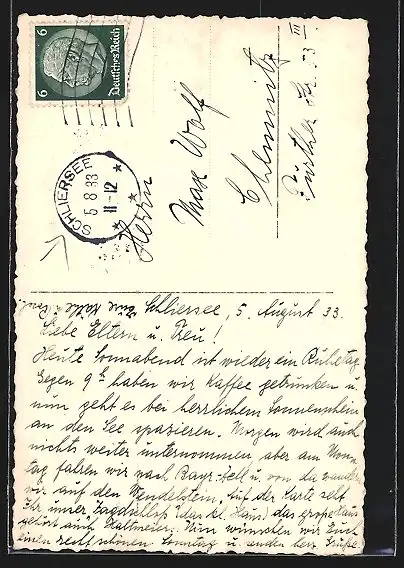 6
6
Deutsches Reich
SCHLIERSEE
5 8 33
11-12
Herrn
Max Wolf
Chemnitz
Fürther Str. 53 III
Schliersee, 5. August 33.
Liebe Eltern u.
Heute Sonnabend ist wieder ein Ruhetag
Gegen 9h haben wir Kaffee getrunken u.
nun geht es bei herrlichem Sonnenschein
an den See spazieren. Morgen wird auch
nichts weiter unternommen aber am Mon-
tag fahren wir nach Bayr.-Zell u. von da wandern
wir auf den Wendelstein. Auf der Karte seht
Ihr unser Jagdschloß (das kl. Haus) das große Haus
gehört auch Haltmeier. Nun wünschen wir Euch
einen recht schönen Sonntag u. senden herz. Grüße